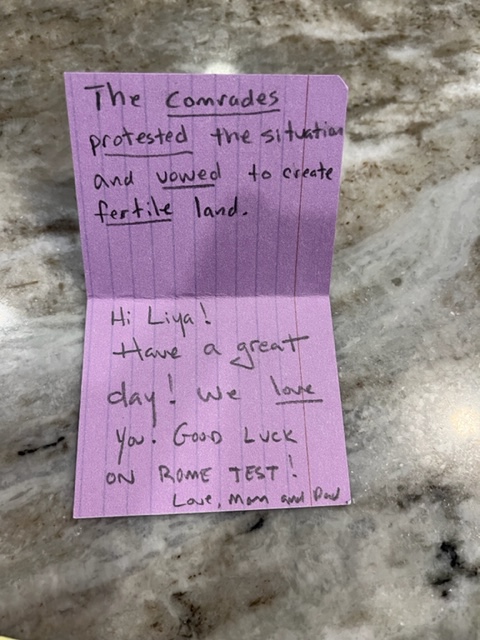 The Comrades
protested the situation
and vowed to create
fertile land.
Hi Liya!
Have a great
day! We love
you! GOOD LUCK
ON ROME TEST!
Love, Mom and Dad.